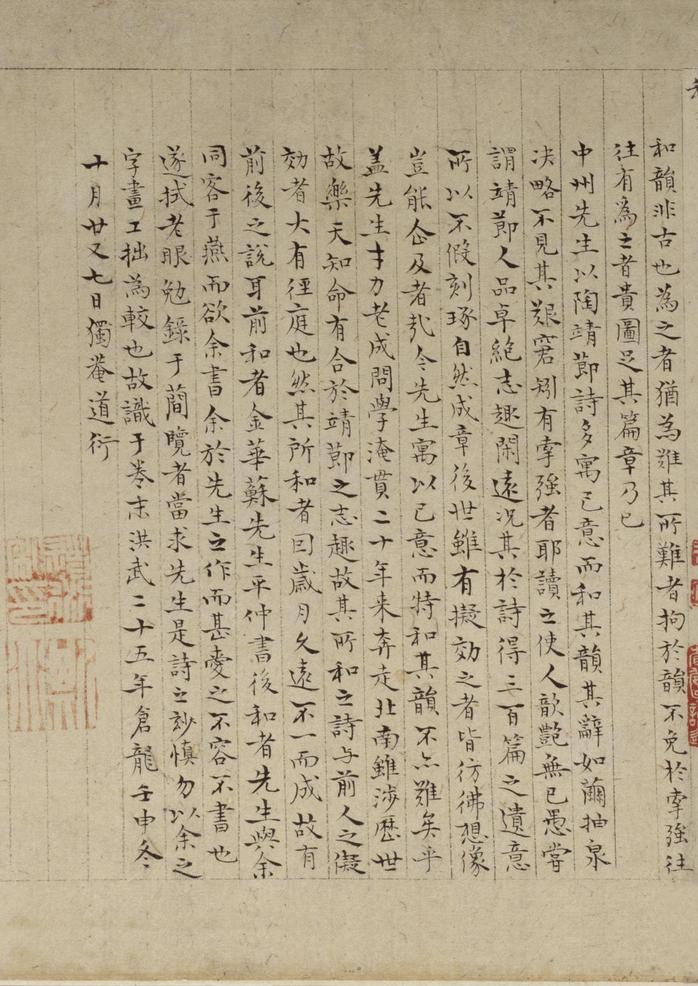 和韻非古也為之者猶為難其所難者拘於韻不免於牽強往
往有為之者貴圖足其篇章乃已
中州先生以陶靖節詩多寓己意而和其韻其辭如繭抽泉
决略不見其艱窘矧有牽強者耶讀之使人歆艷無已愚嘗
謂靖節人品卓絶志趣閑遠况其於詩得三百篇之遺意
所以不假刻琢自然成章後世雖有擬効之者皆彷彿想像
豈能企及者哉今先生寓以己意而特和其韻不亦難矣乎
盖先生才力老成問學淹貫二十年来奔走北南雖涉歷世
故樂天知命有合於靖節之志趣故其所和之詩与前人之儗
効者大有徑庭也然其所和者因歲月久遠不一而成故有
前後之說耳前和者金華蘇先生平仲書後和者先生與余
同客于燕而欲余書余於先生之作而甚愛之不容不書也
遂拭老眼勉錄于蕳覽者當求先生是詩之妙慎勿以余之
字畫工拙為較也故識于卷末洪武二十五年倉龍壬申冬
十月廿又七日獨菴道衍